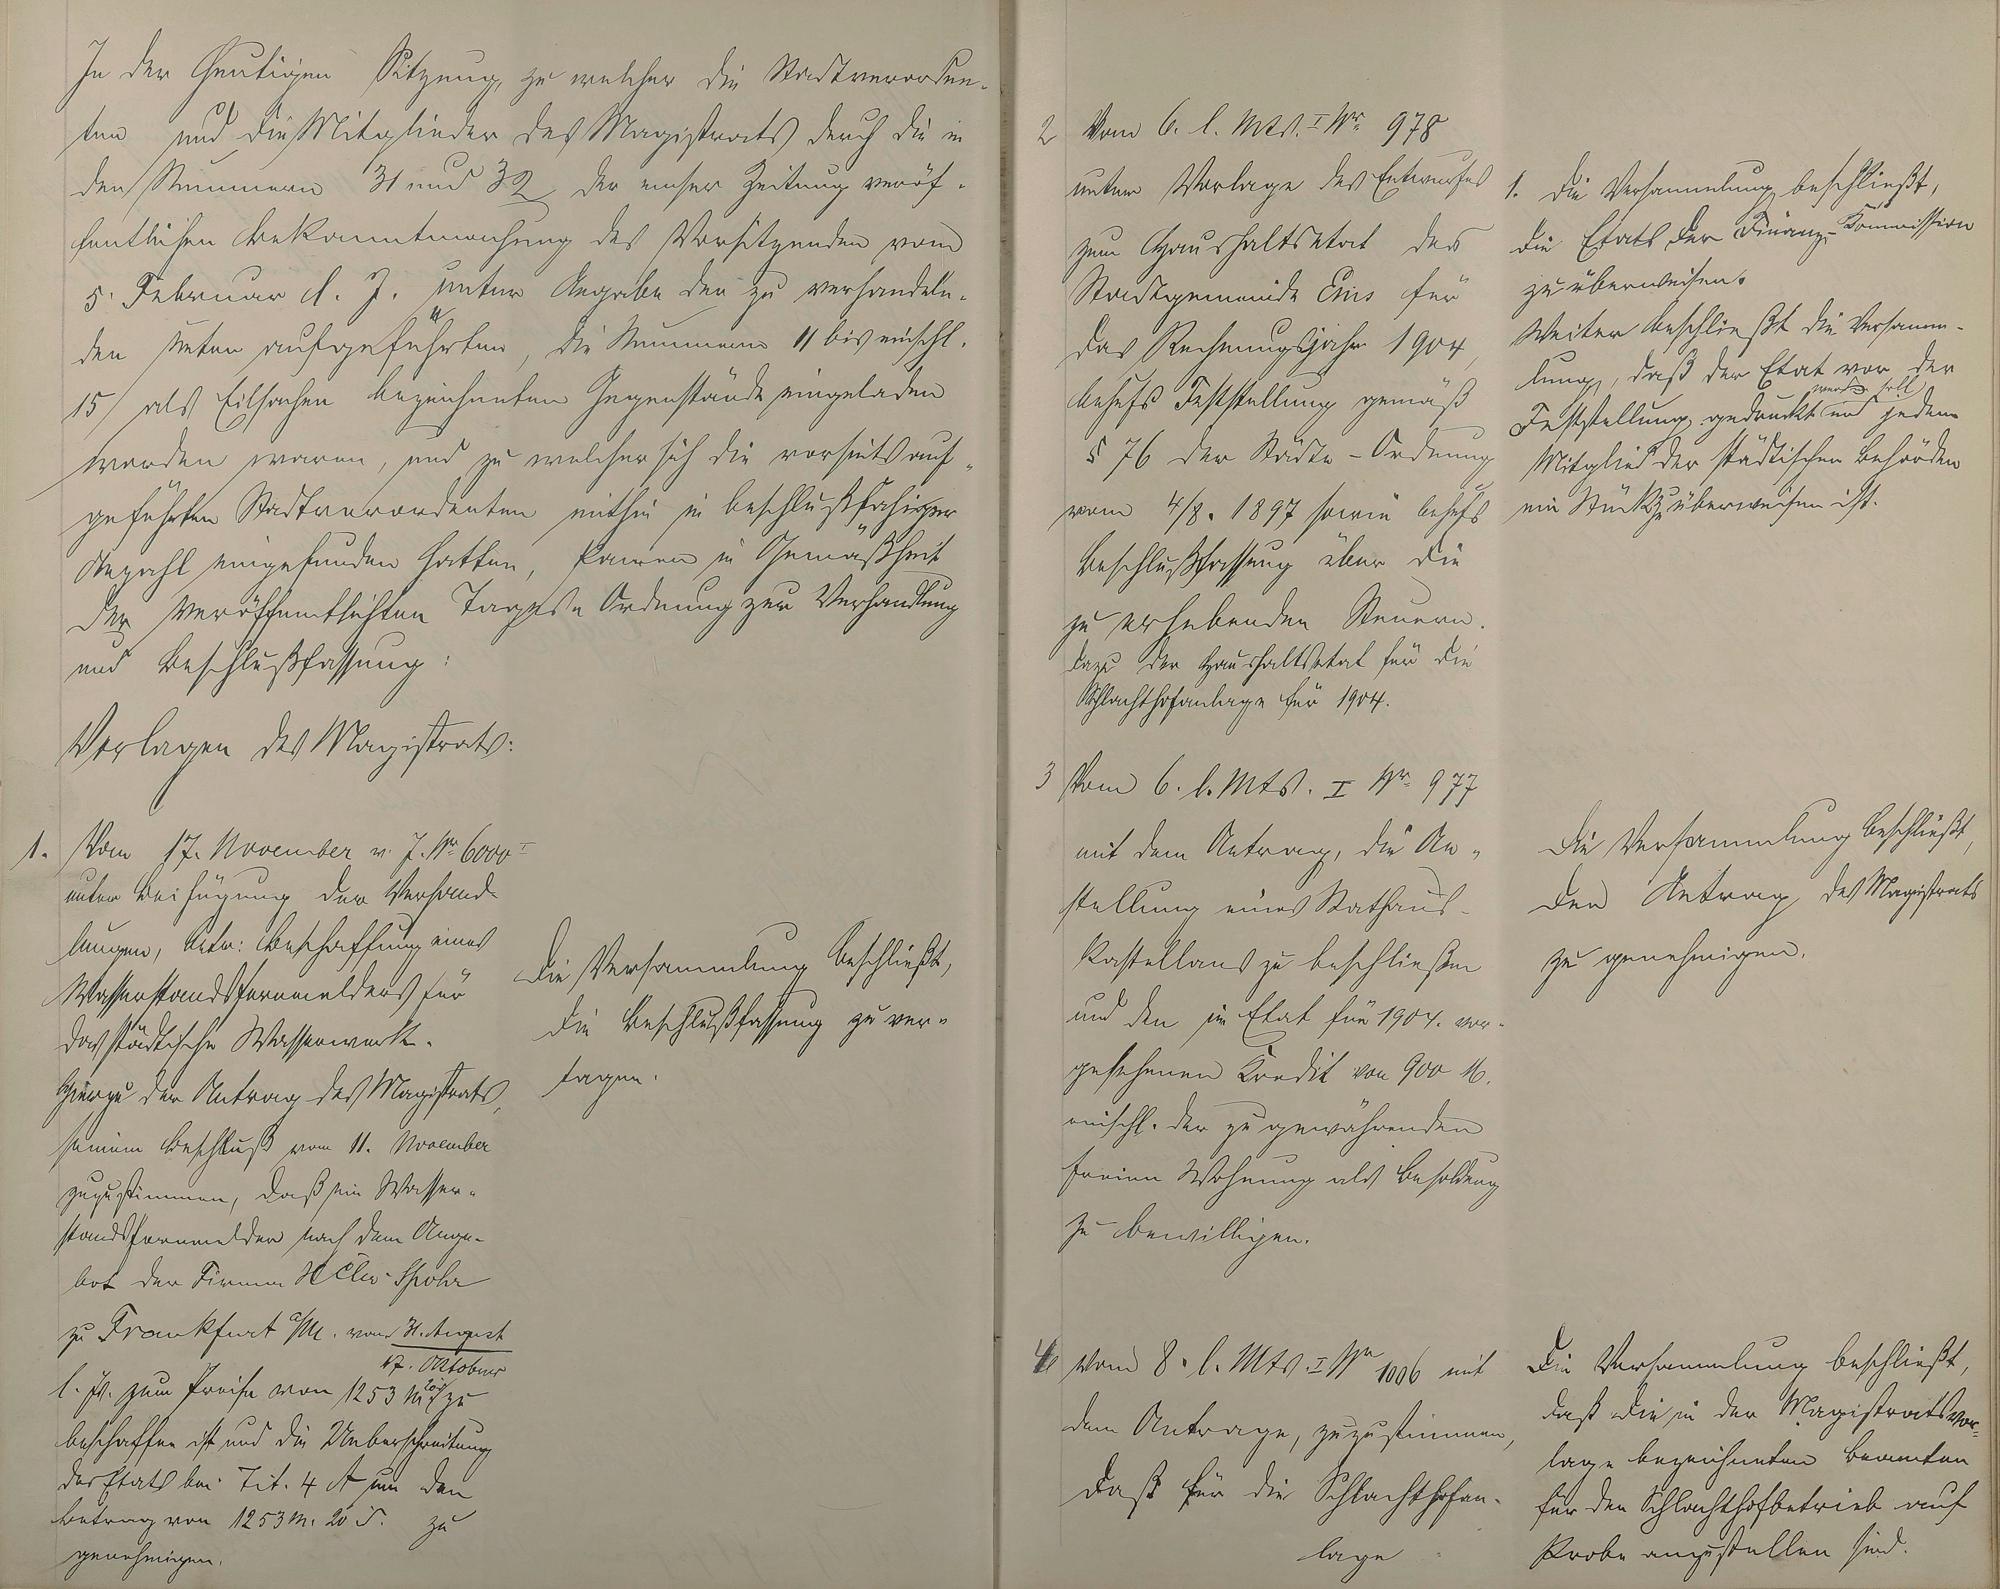 In der heutigen Sitzung, zu welcher die Stadtverordne-
ten und die Mitglieder des Magistrats durch die in
den Nummern 31 und 32 der emser Zeitung veröf-
fentlichten Bekanntmachung des Vorsitzenden vom
5. Februar d. J. unter Angabe der zu verhandeln-
den unten aufgeführten, die Nummern 11 bis einschl.
15 als Eilsachen bezeichneten Gegenstände eingeladen
worden waren, und zu welcher sich die vorseits auf-
geführten Stadtverordneten mithin in beschlußfähiger
Anzahl eingefunden hatten, kamen in Gemäßheit
der veröffentlichten Tages-Ordnung zur Verhandlung
und Beschlußfassung:
Vorlagen des Magistrats:
1. Vom 17. November v. J. Nr 6000 I
unter Beifügung der Verhand-
lungen, betr: Beschaffung eines
Wasserstandsfernmelders für
das städtische Wasserwerk.
Hierzu der Antrag des Magistrats,
seinem Beschluß vom 11. November
zuzustimmen, daß ein Wasser-
standsfernmelder nach dem Ange-
bot der Firma Spohr
zu Frankfurt a/M. vom 31. August
17. Oktober
l. Js. zum Preise von 1253 M 20 zu
beschaffen ist und die Ueberschreitung
des Etats bei Tit. 4 A um den
Betrag von 1253 M. 20 S. zu
genehmigen.
Die Versammlung beschließt,
die Beschlußfassung zu ver-
tagen.
2 Vom 6. l. Mts. I Nr 978
unter Vorlage des Entwurfes
zum Haushaltsetat der
Stadtgemeinde Ems für
das Rechnungsjahr 1904,
behufs Feststellung gemäß
§ 76 der Städte-Ordnung
vom 4/8. 1897 sowie behufs
Beschlußfassung über die
zu erhebenden Steuern.
dazu der Haushaltsetat für die
Schlachthofanlage für 1904.
1. Die Versammlung beschließt,
die Etats der Finanz-Kommission
zu überweisen.
Weiter beschließt die Versamm-
lung, daß der Etat vor der
Feststellung gedruckt werden soll und jedem
Mitglied der städtischen Behörden
ein Stück zu überweisen ist.
3 Vom 6. l. Mts. I Nr 977
mit dem Antrag, die An-
stellung eines Rathaus-
kastellans zu beschließen
und den im Etat für 1904. vor-
gesehenen Kredit von 900 M.
einschl. der zu gewährenden
freien Wohnung als Besoldung
zu bewilligen.
Die Versammlung beschließt,
den Antrag des Magistrats
zu genehmigen.
4 Vom 8. l. Mts. I Nr 1006 mit
dem Antrage, zuzustimmen,
daß für die Schlachthofan-
lage
Die Versammlung beschließt,
daß die in der Magistratsvor-
lage bezeichneten Beamten
für den Schlachthofbetrieb auf
Probe anzustellen sind.